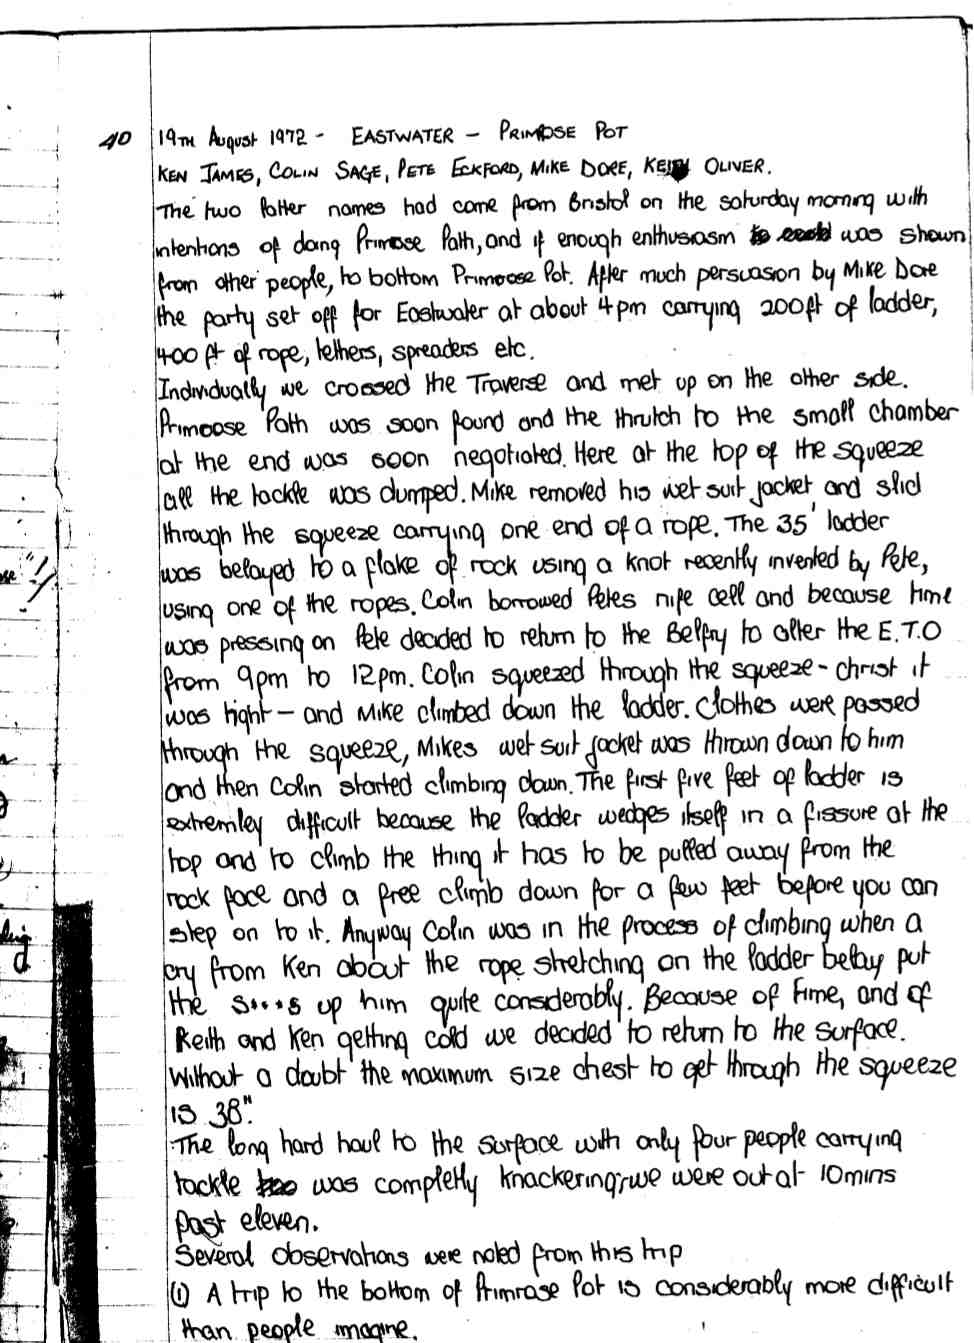 40 19TH August 1972 - EASTWATER - PRIMROSE POT
KEN JAMES, COLIN SAGE, PETE ECKFORD, MIKE DORE, KEITH OLIVER.
The two latter names had come from Bristol on the saturday morning with
intentions of doing Primrose Path, and if enough enthusiasm was shown
from other people, to bottom Primroose Pot. After much persuasion by Mike Dore
the party set off for Eastwater at about 4pm carrying 200ft of ladder,
400 ft of rope, tethers, spreaders etc.
Individually we crossed the Traverse and met up on the other side.
Primoose Path was soon found and the thrutch to the small chamber
at the end was soon negotiated. Here at the top of the squeeze
all the tackle was dumped. Mike removed his wet suit jacket and slid
through the squeeze carrying one end of a rope. The 35' ladder
was belayed to a flake of rock using a knot recently invented by Pete,
using one of the ropes. Colin borrowed Petes nife cell and because time
was pressing on Pete decided to return to the Belfry to alter the E.T.O
from 9pm to 12pm. Colin squeezed through the squeeze - christ it
was tight - and Mike climbed down the ladder. Clothes were passed
through the squeeze, Mikes wet suit jacket was thrown down to him
and then Colin started climbing down. The first five feet of ladder is
extremley difficult because the ladder wedges itself in a fissure at the
top and to climb the thing it has to be pulled away from the
rock face and a free climb down for a few feet before you can
step on to it. Anyway Colin was in the process of climbing when a
cry from Ken about the rope stretching on the ladder belay put
the s····s up him quite considerably. Because of time, and of
Keith and Ken getting cold we decided to return to the surface.
Without a doubt the maximum size chest to get through the squeeze
is 38".
The long hard haul to the surface with only four people carrying
tackle was completly knackering; we were out at 10mins
past eleven.
Several observations were noted from this trip
(1) A trip to the bottom of Primrose Pot is considerably more difficult
than people imagine.